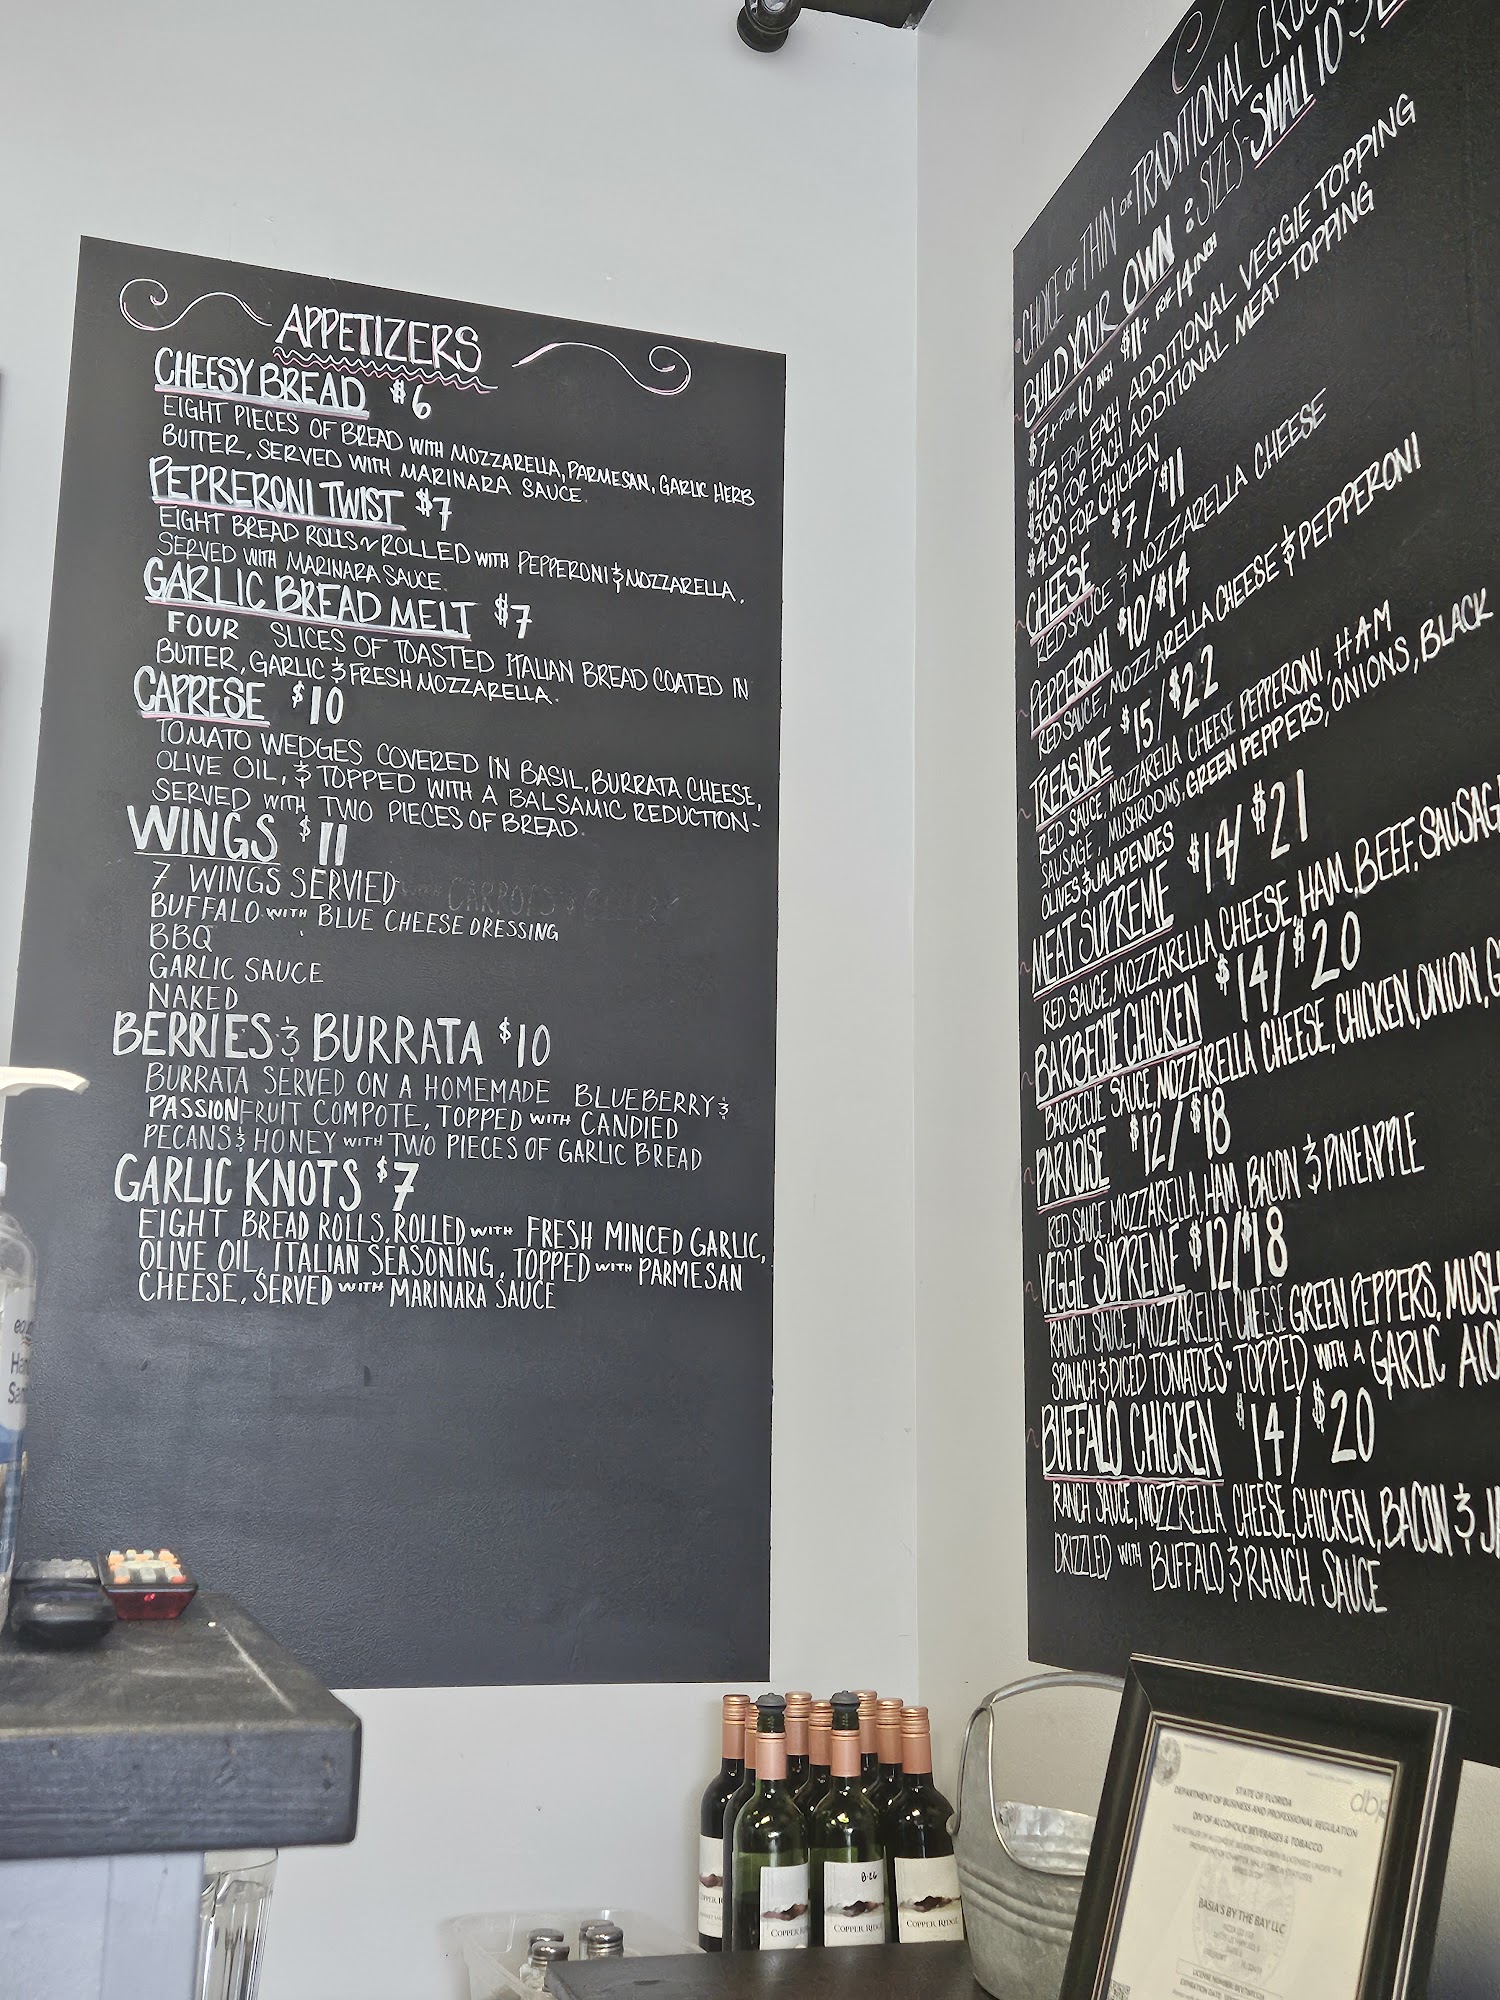 APPETIZERS
CHEESY BREAD $6
EIGHT PIECES OF BREAD WITH MOZZARELLA, PARMESAN, GARLIC HERB
BUTTER, SERVED WITH MARINARA SAUCE.
PEPRERONI TWIST $7
EIGHT BREAD ROLLS ~ ROLLED WITH PEPPERONI & MOZZARELLA,
SERVED WITH MARINARA SAUCE.
GARLIC BREAD MELT $7
FOUR SLICES OF TOASTED ITALIAN BREAD COATED IN
BUTTER, GARLIC & FRESH MOZZARELLA.
CAPRESE $10
TOMATO WEDGES COVERED IN BASIL, BURRATA CHEESE,
OLIVE OIL, & TOPPED WITH A BALSAMIC REDUCTION-
SERVED WITH TWO PIECES OF BREAD.
WINGS $11
7 WINGS SERVIED WITH CARROTS & CELERY
BUFFALO WITH BLUE CHEESE DRESSING
BBQ
GARLIC SAUCE
NAKED
BERRIES & BURRATA $10
BURRATA SERVED ON A HOMEMADE BLUEBERRY &
PASSIONFRUIT COMPOTE, TOPPED WITH CANDIED
PECANS & HONEY WITH TWO PIECES OF GARLIC BREAD
GARLIC KNOTS $7
EIGHT BREAD ROLLS, ROLLED WITH FRESH MINCED GARLIC,
OLIVE OIL, ITALIAN SEASONING, TOPPED WITH PARMESAN
CHEESE, SERVED WITH MARINARA SAUCE
CHOICE OF THIN OR TRADITIONAL
BUILD YOUR OWN : SIZES~ SMALL 10" &
$7+ FOR 10 INCH $11+ FOR 14 INCH
$1.75 FOR EACH ADDITIONAL VEGGIE TOPPING
$3.00 FOR EACH ADDITIONAL MEAT TOPPING
$4.00 FOR CHICKEN
CHEESE $7/$11
RED SAUCE & MOZZARELLA CHEESE
PEPPERONI $10/$14
RED SAUCE, MOZZARELLA CHEESE & PEPPERONI
TREASURE $15/$22
RED SAUCE, MOZZARELLA CHEESE PEPPERONI, HAM
SAUSAGE, MUSHROOMS, GREEN PEPPERS, ONIONS, BLACK
OLIVES & JALAPENOES
MEAT SUPREME $14/$21
RED SAUCE, MOZZARELLA CHEESE, HAM, BEEF, SAUSAG
BARBECUE CHICKEN $14/$20
BARBECUE SAUCE, MOZZARELLA CHEESE, CHICKEN, ONION, G
PARADISE $12/$18
RED SAUCE, MOZZARELLA, HAM, BACON & PINEAPPLE
VEGGIE SUPREME $12/$18
RANCH SAUCE, MOZZARELLA CHEESE GREEN PEPPERS, MUSH
SPINACH & DICED TOMATOES~ TOPPED WITH A GARLIC AIO
BUFFALO CHICKEN $14/$20
RANCH SAUCE, MOZZRELLA CHEESE, CHICKEN, BACON & J
DRIZZLED WITH BUFFALO & RANCH SAUCE
B-26
COPPER RIDGE
STATE OF FLORIDA
DEPARTMENT OF BUSINESS AND PROFESSIONAL REGULATION
DIV OF ALCOHOLIC BEVERAGES & TOBACCO
BASIA'S BY THE BAY LLC